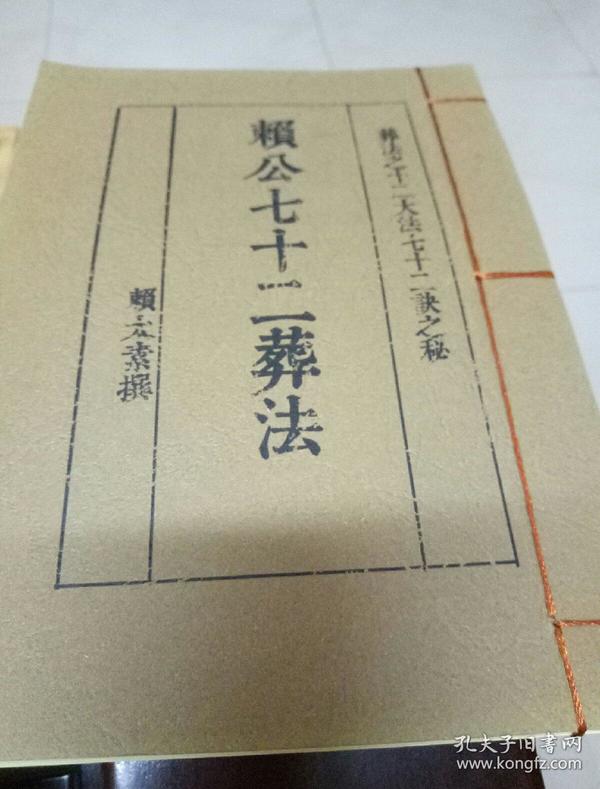 葬法之十二大法·七十二訣之秘
賴公七十二葬法
賴文素撰
孔夫子旧书网
www.kongfz.com